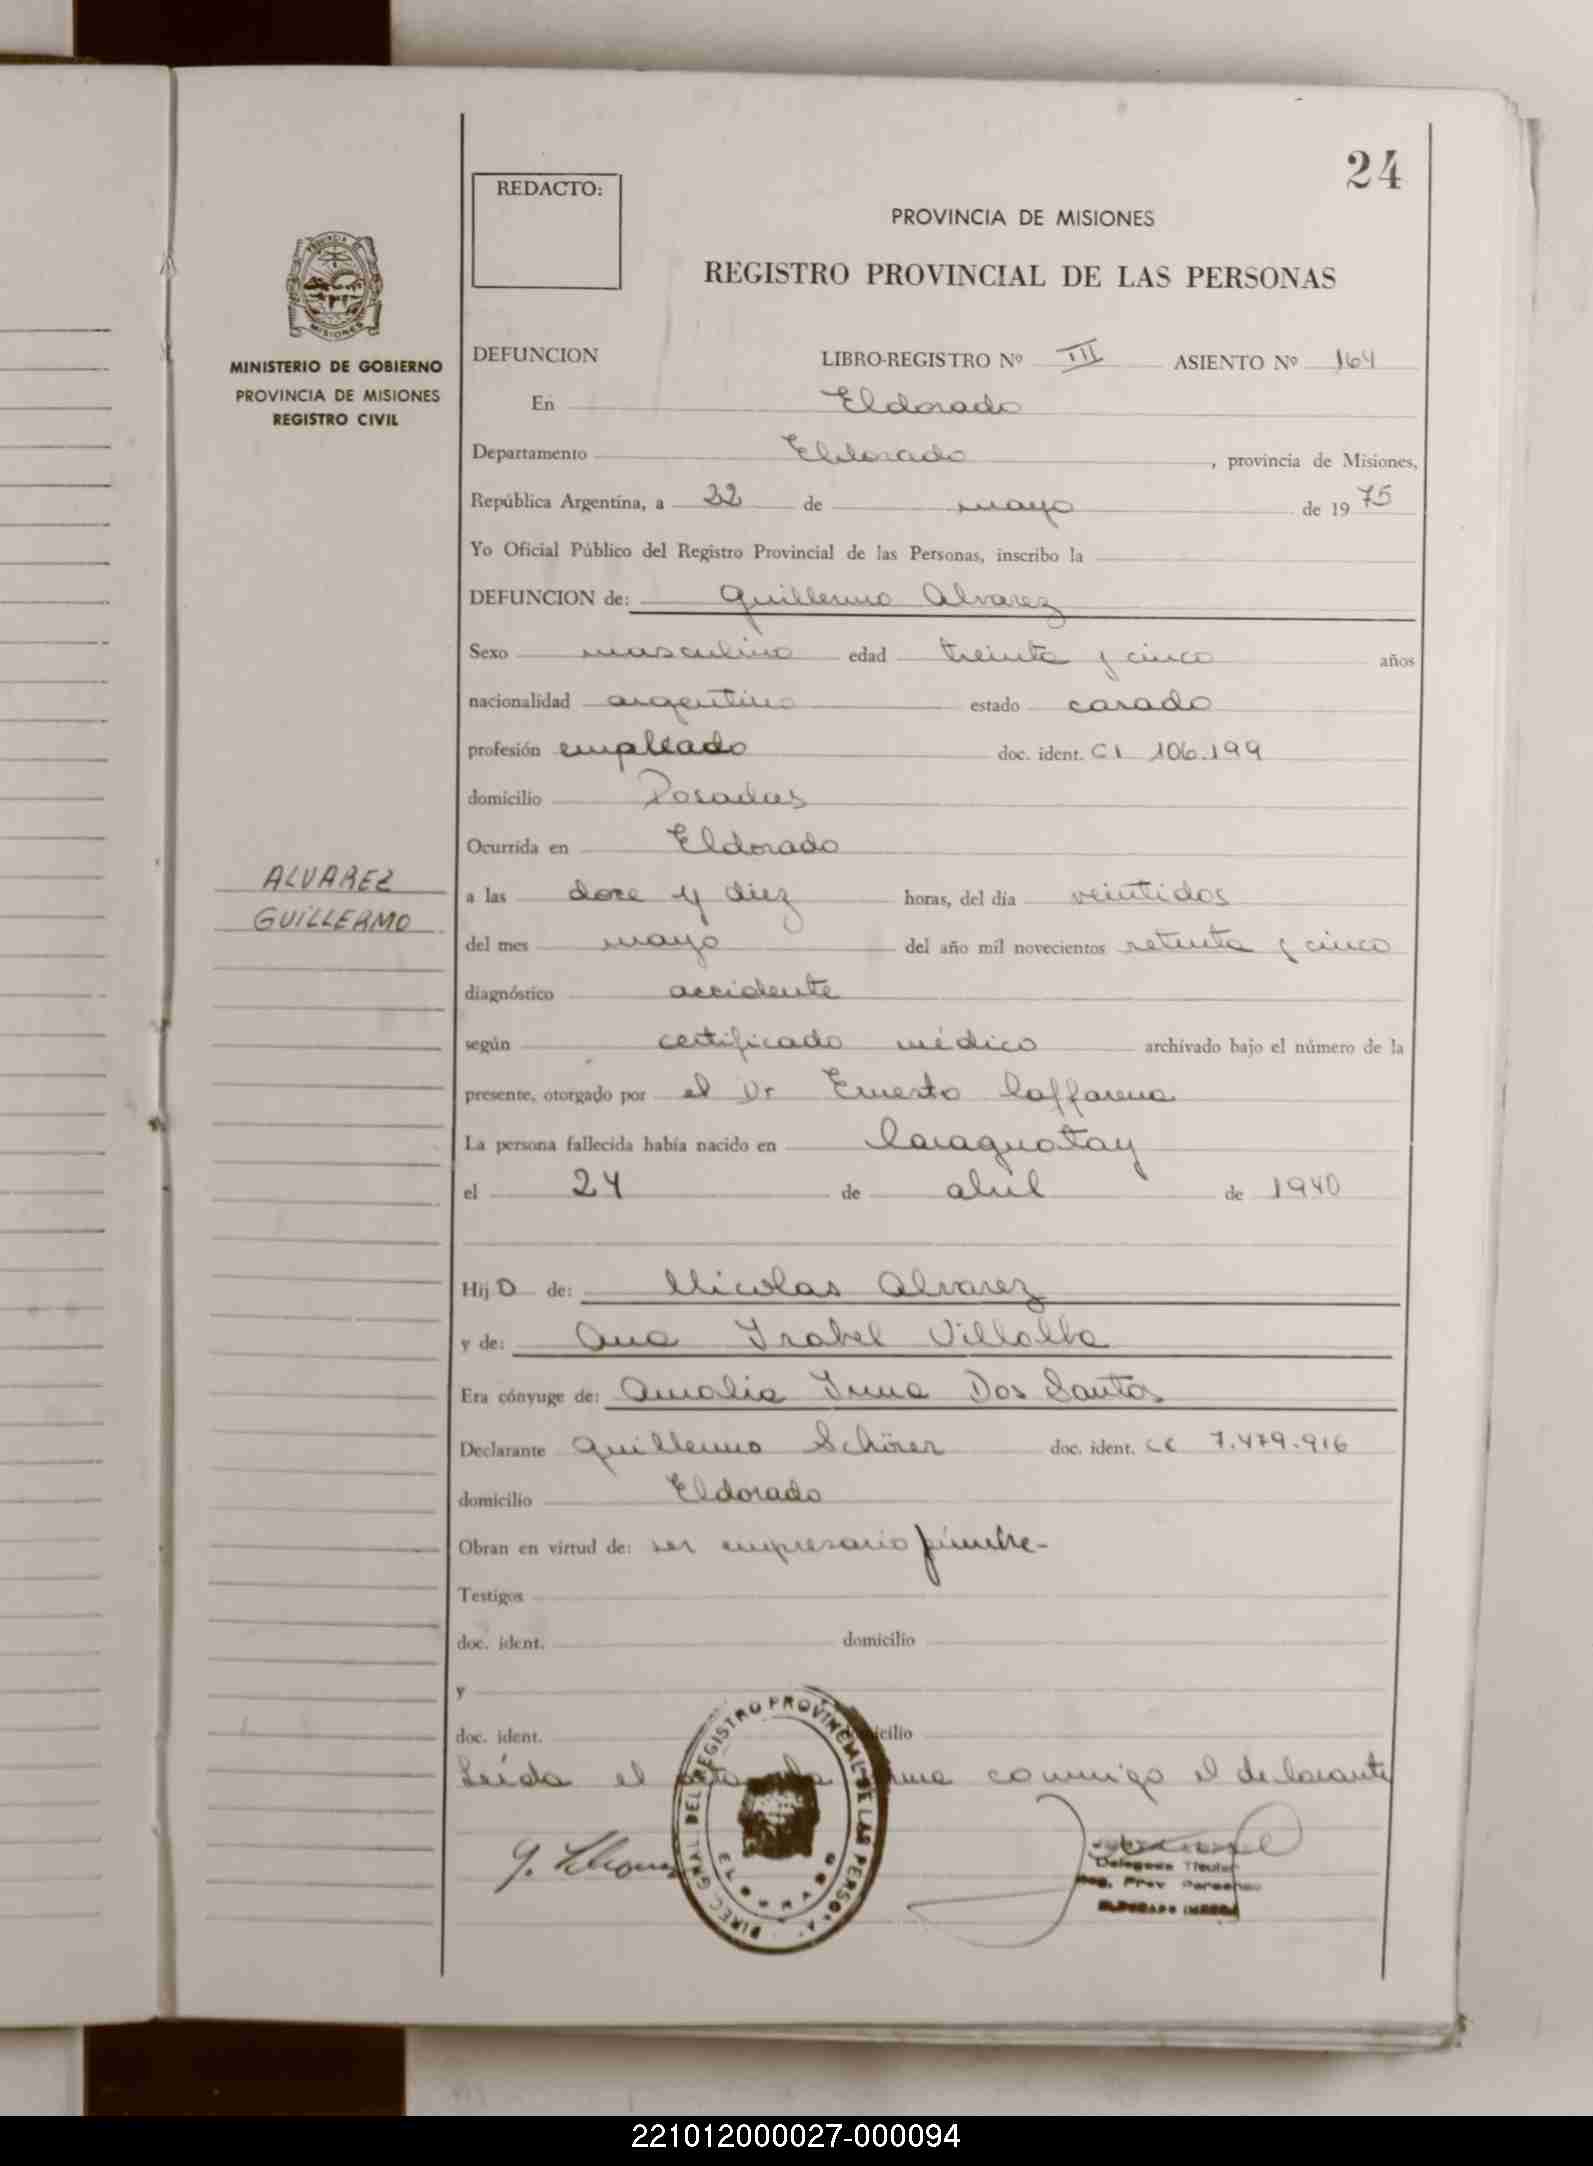 24
REDACTO:
PROVINCIA DE MISIONES
REGISTRO PROVINCIAL DE LAS PERSONAS
PROVINCIA DE
MISIONES
MINISTERIO DE GOBIERNO
PROVINCIA DE MISIONES
REGISTRO CIVIL
DEFUNCION LIBRO-REGISTRO Nº III ASIENTO Nº 164
En Eldorado
Departamento Eldorado, provincia de Misiones,
República Argentina, a 22 de mayo de 1975
Yo Oficial Público del Registro Provincial de las Personas, inscribo la
DEFUNCION de: Guillermo Alvarez
Sexo masculino edad treinta y cinco años
nacionalidad argentino estado casado
profesión empleado doc. ident. CI 106.199
domicilio Posadas
Ocurrida en Eldorado
ALVAREZ
GUILLERMO
a las doce y diez horas, del día veintidos
del mes mayo del año mil novecientos setenta y cinco
diagnóstico accidente
según certificado médico archivado bajo el número de la
presente, otorgado por el Dr Ernesto Caffarena
La persona fallecida había nacido en Caraguatay
el 24 de abril de 1940
Hijo de: Nicolas Alvarez
y de: Ana Isabel Villalba
Era cónyuge de: Amalia Irma Dos Santos
Declarante Guillermo Schörer doc. ident. LE 7.479.916
domicilio Eldorado
Obran en virtud de: ser empresario fúnebre-
Testigos
doc. ident. domicilio
y
doc. ident. domicilio
Leída el acta la firma conmigo el declarante
DIREC. GRAL. DEL REGISTRO PROVINCIAL DE LAS PERSO
ELDORADO
Titular
Reg. Prov Personas
221012000027-000094